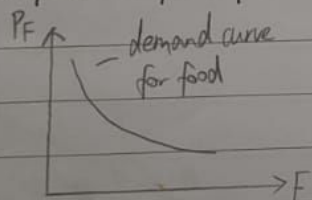 P_F
demand curve
for food
F